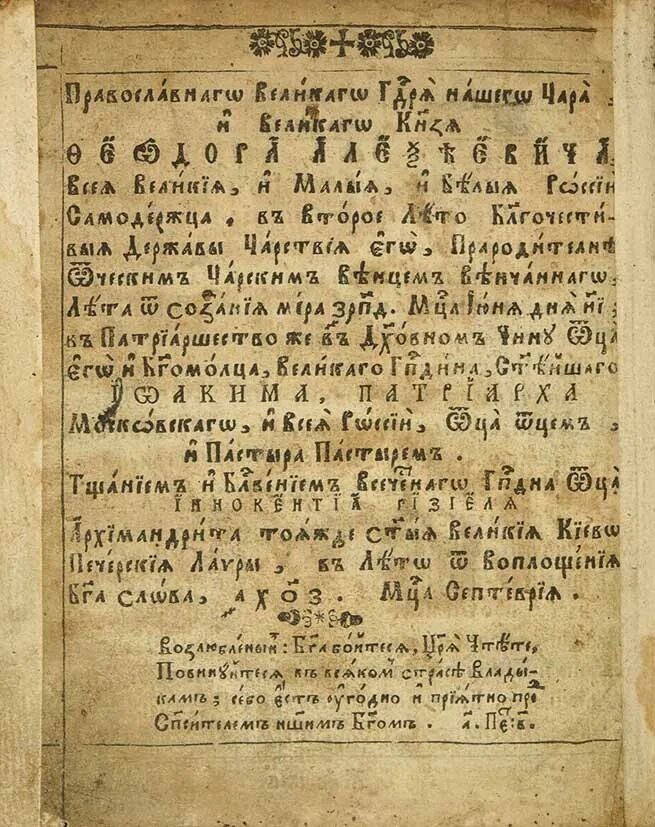 Православнагѡ Великагѡ Гдⷭ҇рѧ нашегѡ Царѧ ,
и҆ Великагѡ Кнѧзѧ
Ѳ Е Ѡ Д О Р А А Л Е Ѯ Ѣ Е В И Ч А ,
Всеѧ Великїѧ , и҆ Малыѧ , и҆ Бѣлыѧ Рѡссїи
Самодержца . въ второе Лѣто Блгочести-
выѧ Державы Царствїѧ є҆гѡ̀ , Прародителнѣ
Ѿческимъ Царскимъ Вѣнцемъ Вѣнчаннагѡ ,
Лѣта ѿ созданїѧ мира зрпд . Мцⷭ҇а Їюнѧ днѧ и҃і ;
въ Патрїаршество же въ Дхⷪ҇вномъ Чину Ѿца̀
є҆гѡ̀ и҆ Бгⷪ҇молца , Великаго Гпⷭ҇дина , Ст҃ѣйшаго
І Ѡ А К И М А , П А Т Р Ї А Р Х А
Московскагѡ , и҆ всеѧ Рѡссїи , Ѿца̀ ѿцемъ ,
и҆ Пастырѧ Пастыремъ .
Тщанїемъ и҆ Блⷭ҇венїемъ Всечⷭ҇тнагѡ Гпⷭ҇дна Ѿца̀
І Н Н О К Е Н Т Ї А Г І З І Е Л Ѧ
Архїмандрита тоѧжде ст҃ыѧ Великїѧ Кїево
Печерскїѧ Лауры , въ Лѣто ѿ воплощенїѧ
Бг҃а слова , ахоз . Мцⷭ҇а Септеврїѧ .
Возлюбленыи : Бг҃а бойтесѧ , Црѧ̀ Чтѣте ,
Повинуйтесѧ въ всѧкомъ страсѣ Влады-
камъ ; се бо є҆стъ оугодно и҆ прїѧтно пре
Сп҃сителемъ ншимъ Бг҃омъ . а҃ . Пет : в҃ .